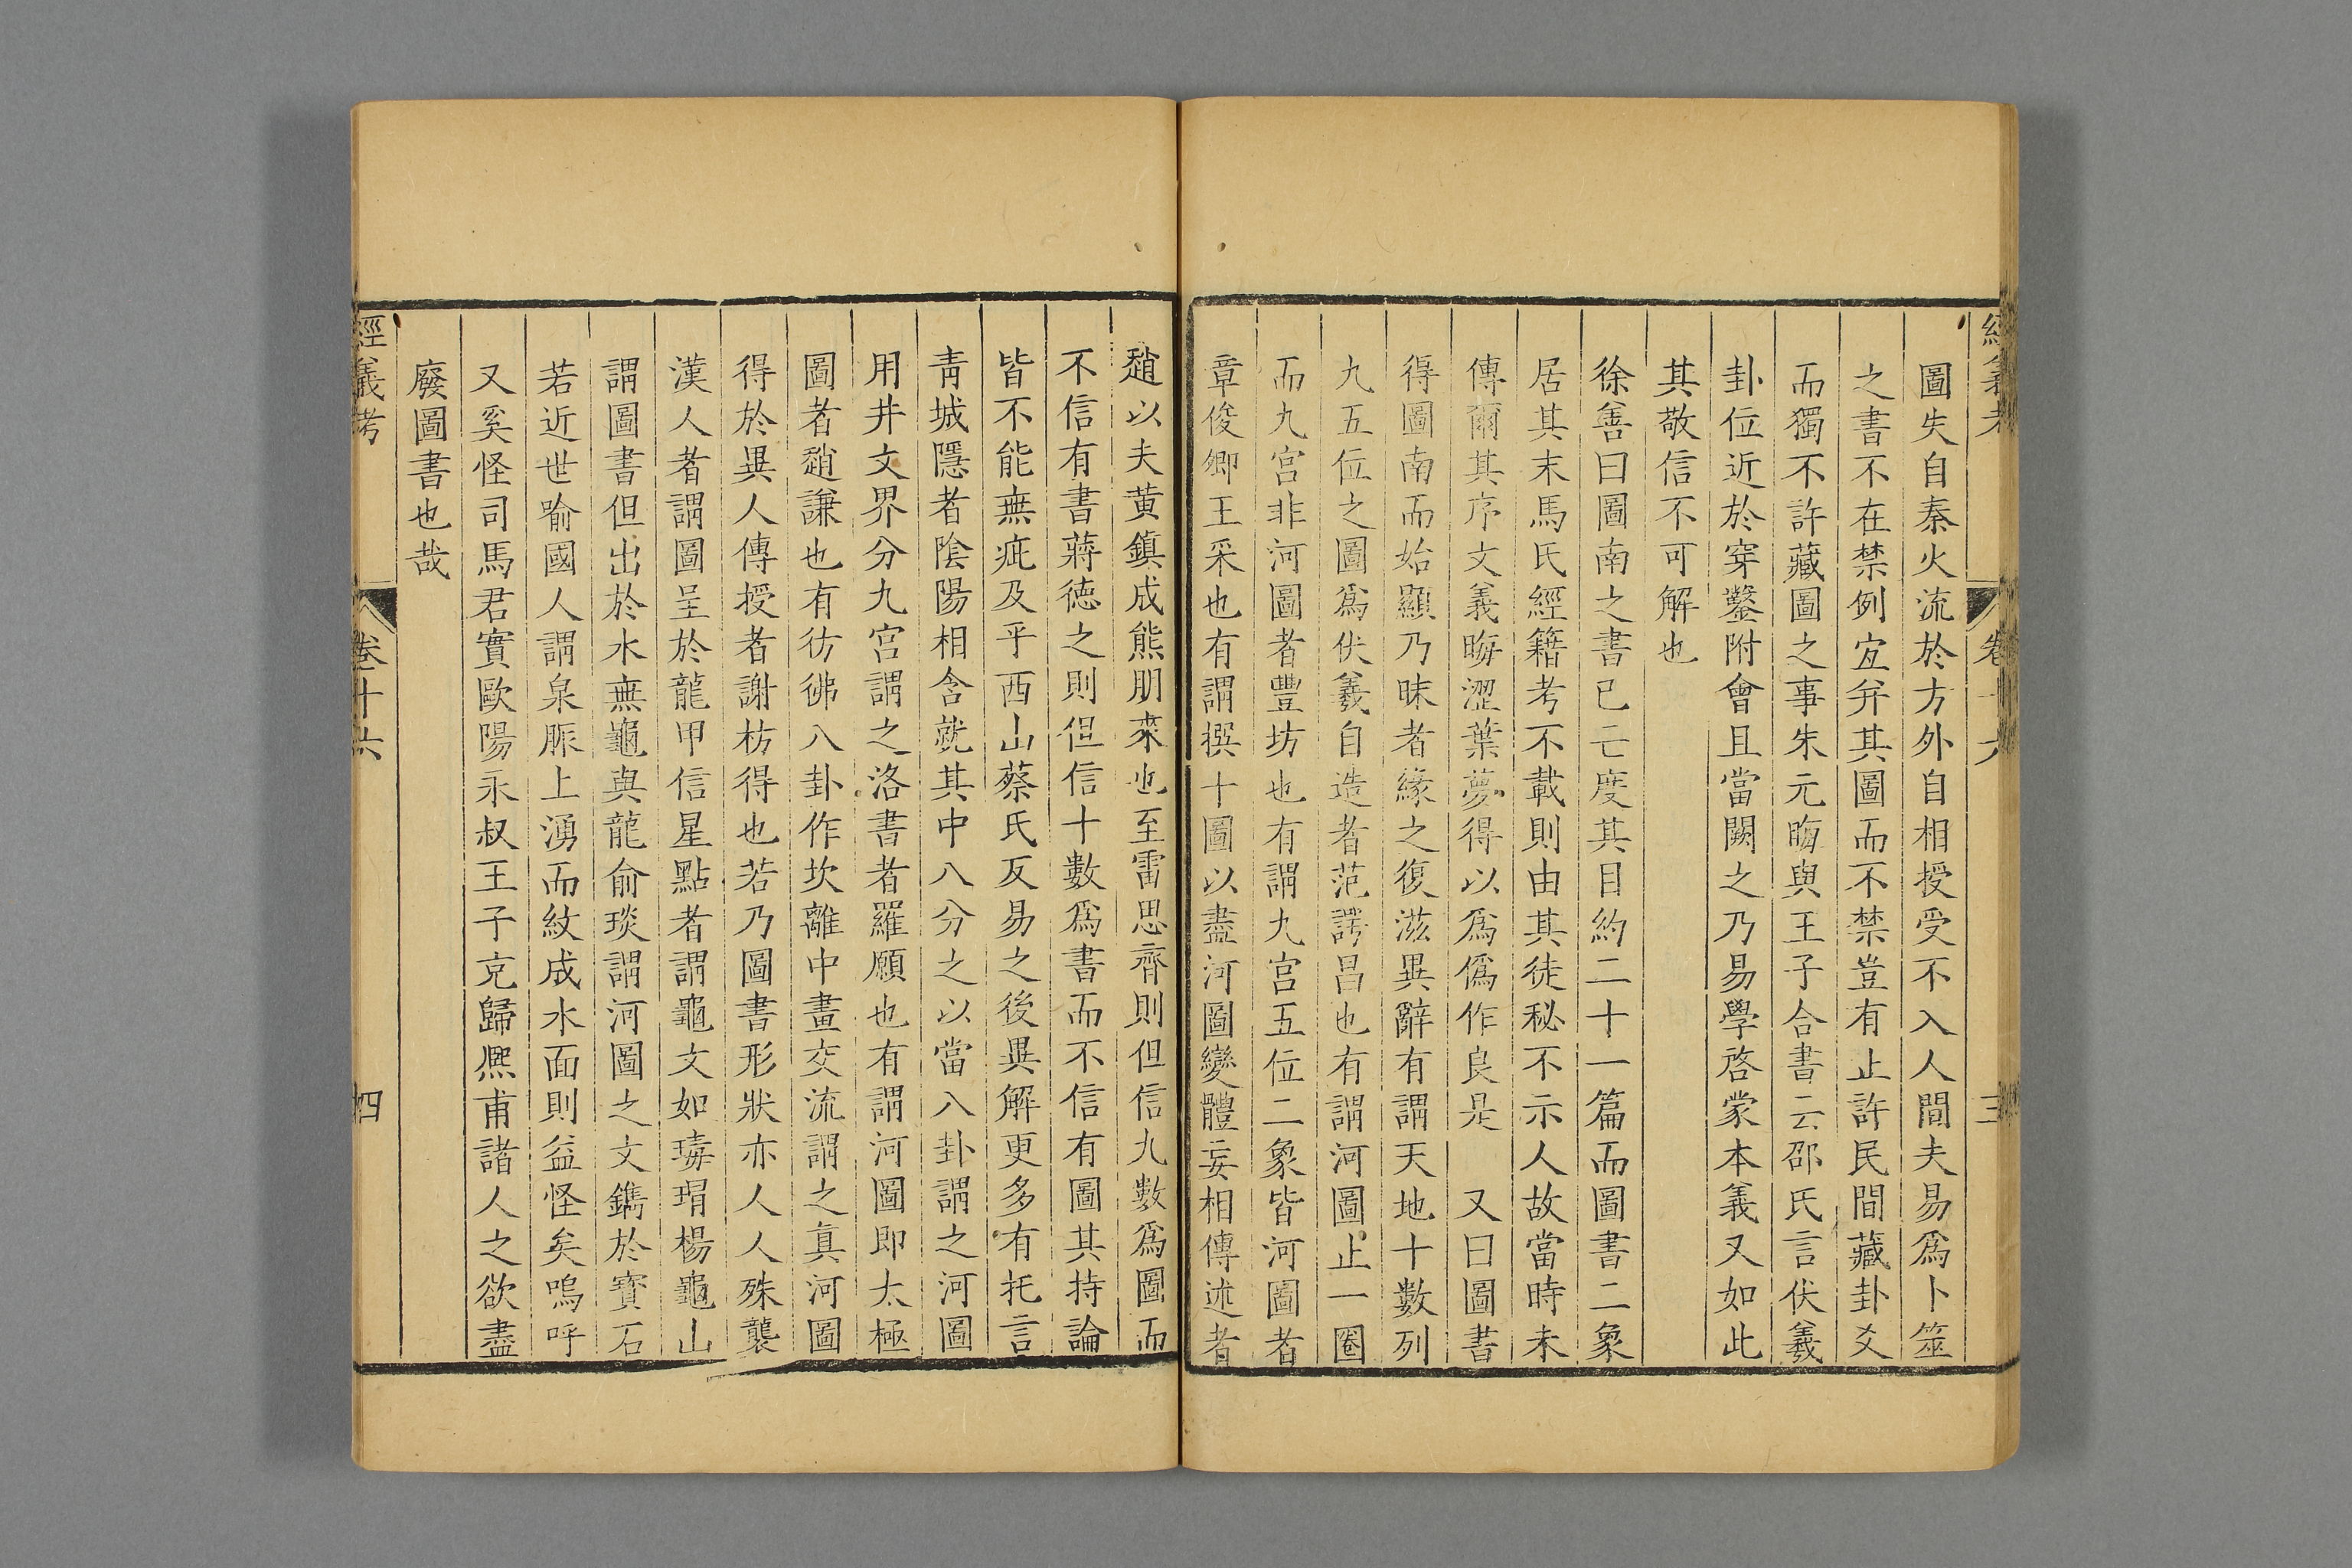 經義考
卷十六
三
圖失自秦火流於方外自相授受不入人間夫易爲卜筮
之書不在禁例宜并其圖而不禁豈有止許民間藏卦爻
而獨不許藏圖之事朱元晦與王子合書云邵氏言伏羲
卦位近於穿鑿附會且當闕之乃易學啓蒙本義又如此
其敬信不可解也
徐善曰圖南之書已亡度其目約二十一篇而圖書二象
居其末馬氏經籍考不載則由其徒秘不示人故當時未
傳爾其序文義晦澀葉夢得以爲僞作良是 又曰圖書
得圖南而始顯乃昧者緣之復滋異辭有謂天地十數列
九五位之圖爲伏羲自造者范諤昌也有謂河圖止一圈
而九宫非河圖者豐坊也有謂九宫五位二象皆河圖者
章俊卿王采也有謂撰十圖以盡河圖變體妄相傳述者
趙以夫黄鎮成熊朋來也至雷思齊則但信九數爲圖而
不信有書蔣德之則但信十數爲書而不信有圖其持論
皆不能無疵及乎西山蔡氏反易之後異解更多有托言
青城隱者陰陽相含就其中八分之以當八卦謂之河圖
用井文界分九宫謂之洛書者羅願也有謂河圖即太極
圖者趙謙也有彷彿八卦作坎離中畫交流謂之真河圖
得於異人傳授者謝枋得也若乃圖書形狀亦人人殊襲
漢人者謂圖呈於龍甲信星點者謂龜文如瑇瑁楊龜山
謂圖書但出於水無龜與龍俞琰謂河圖之文鐫於寳石
若近世喻國人謂泉脈上湧而紋成水面則益怪矣嗚呼
又奚怪司馬君實歐陽永叔王子充歸熙甫諸人之欲盡
廢圖書也哉
經義考
卷十六
四